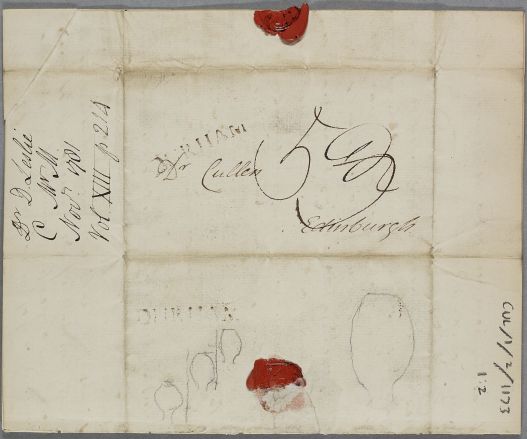 DURHAM
Dr Cullen
Edinburgh
Dr D Leslie
C Mr M.
Novr. 1781
Vol XIII p 214
DURHAM
CUL/1/2/1173
1:2